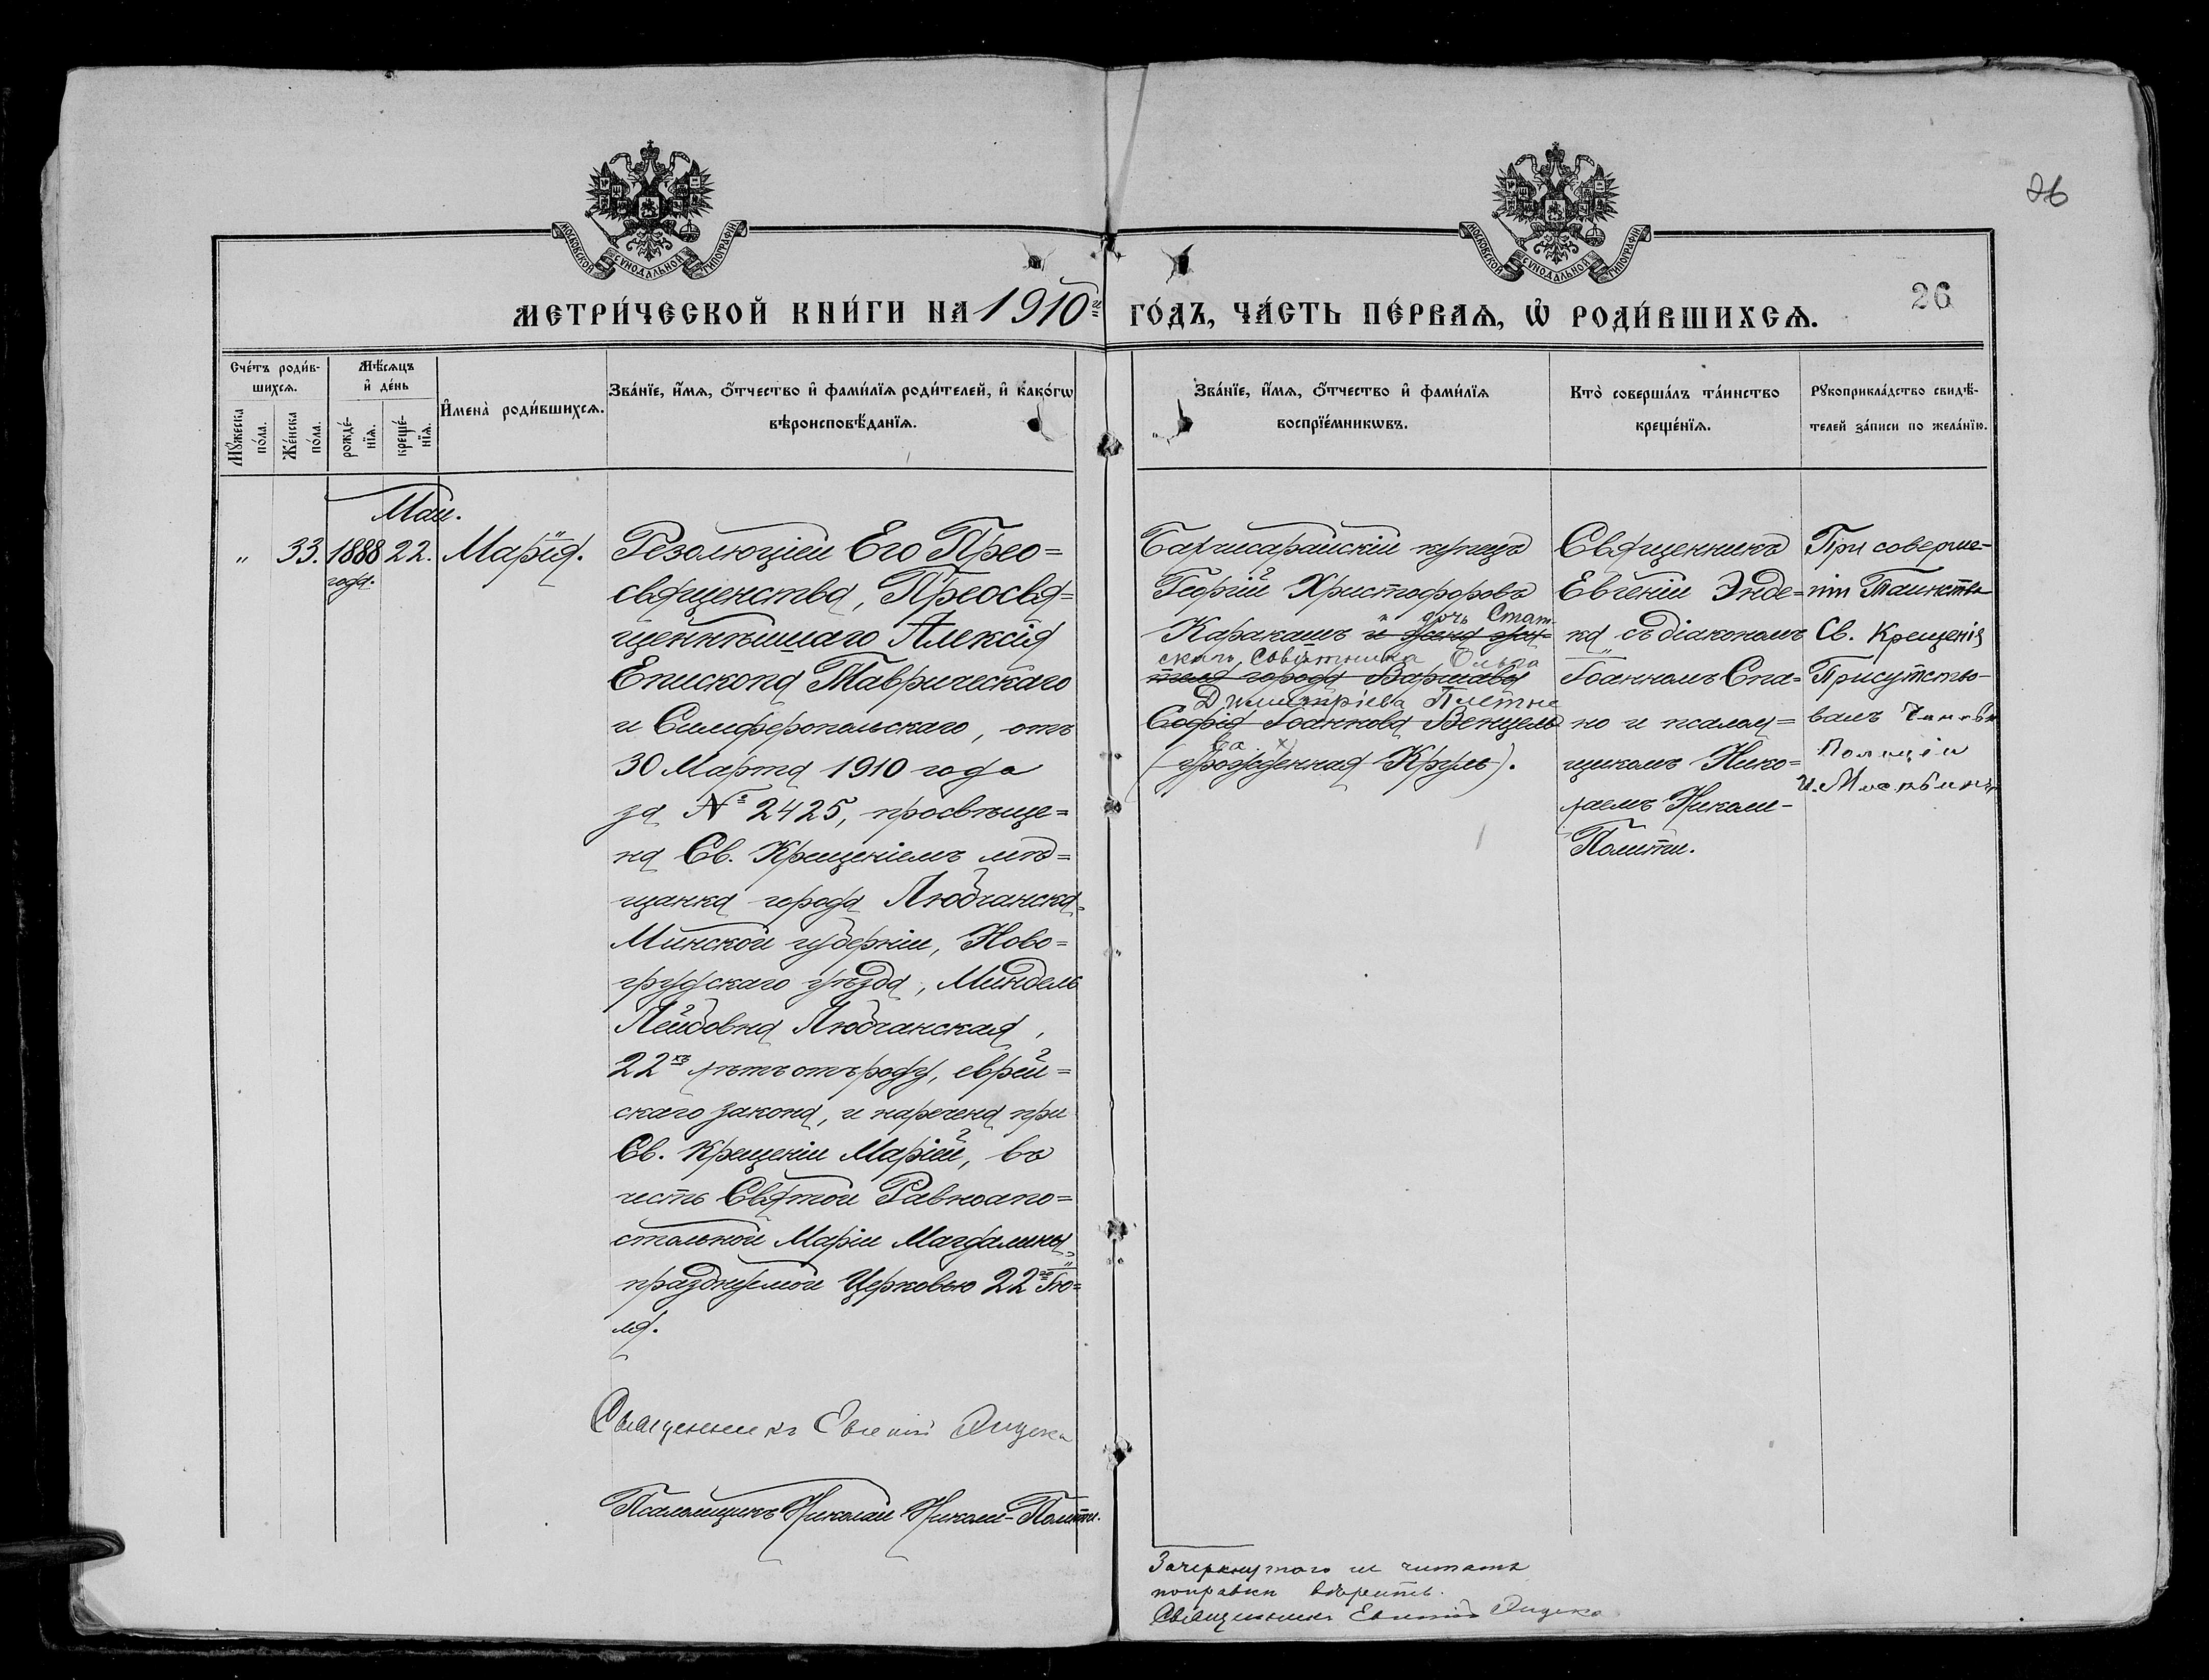 26
МОСКОВСКОЙ СѴНОДАЛЬНОЙ ТИПОГРАФІИ
МОСКОВСКОЙ СѴНОДАЛЬНОЙ ТИПОГРАФІИ
МЕТРИ́ЧЕСКОЙ КНИ́ГИ НА 1910й ГО́ДЪ, ЧА́СТЬ ПЕ́РВАѦ, Ѡ҆ РОДИ́ВШИХСѦ.
26
Сче́тъ роди́в-
шихсѧ.
Мꙋ́жеска по́ла.
Же́нска по́ла.
Мѣ́сѧцъ
и҆ де́нь
рожде́-
нїѧ.
креще́-
нїѧ.
И҆мена̀ роди́вшихсѧ.
Зва́нїе, и҆́мѧ, ѻ҆́тчество и҆ фами́лїѧ роди́телей, и҆ како́гѡ
вѣроисповѣ́данїѧ.
Зва́нїе, и҆́мѧ, ѻ҆́тчество и҆ фами́лїѧ
воспрїе́мникѡвъ.
Кто̀ соверша́лъ та́инство
креще́нїѧ.
Рꙋкоприкла́дство свидѣ́-
телей за́писи по жела́нїю.
Май.
„ 33. 1888 22. Марія.
года.
Резолюціей Его Прео=
священства, Преосвя=
щеннѣйшаго Алексія
Епископа Таврическаго
и Симферопольскаго, отъ
30 Марта 1910 года
за № 2425, просвѣще=
на Св. Крещеніемъ мѣ=
щанка города Любчанска,
Минской губерніи, Ново=
грудскаго уѣзда, Миндель
Лейбовна Любчанская,
22хъ лѣтъ отъ роду, еврей=
скаго закона, и наречена при
Св. Крещеніи Маріей, въ
честь Святой Равноапо=
стольной Маріи Магдалины,
празднуемой Церковью 22го Ію=
ля.
Священникъ Евгеній Эндека
Псаломщикъ Николай Николи-Полити.
Бахчисарайскій купецъ
Георгій Христофоровъ
и дочь Стат-
Каракашъ и жена жи=
скаго Совѣтника Ольга
теля города Варшавы
Димитріева Плетне
Софія Іоаннова Венцель
ва
(урожденная Круль).
Священникъ
Евгеній Энде=
ка съ діакономъ
Іоанномъ Спа=
но и псалом=
щикомъ Нико=
лаемъ Николи-
Полити.
При соверше-
ніи Таинства
Св. Крещенія
Присутство-
валъ
Полиціи
Зачеркнутого не читать
поправки вѣрить.
Священникъ Евгеній Эндека